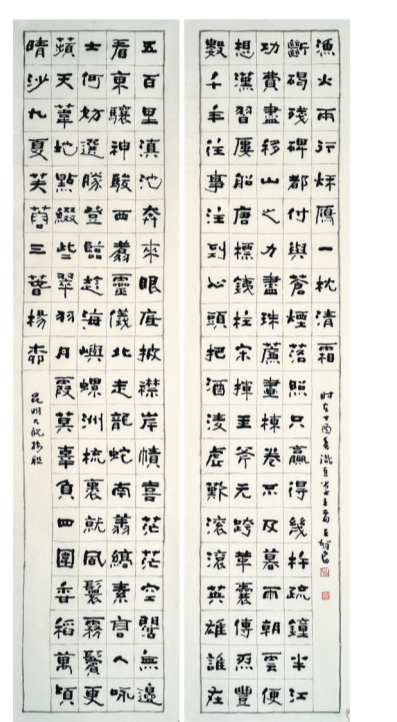 五百里滇池奔來眼底披襟岸幘喜茫茫空闊無邊
看東驤神駿西翥靈儀北走龍蛇南翔縞素高人咏
士何妨選勝登臨趁海嶼螺洲梳裹就風鬟霧鬢更
蘋天葦地點綴些翠羽丹霞莫辜負四圍香稻萬頃
晴沙九夏芙蓉三春楊柳
昆明大觀樓聯
數千年往事注到心頭把酒凌虛歎滾滾英雄誰在
想漢習樓船唐標鐵柱宋揮玉斧元跨革囊偉烈豐
功費盡移山心力盡珠簾畫棟卷不及暮雨朝雲便
斷碣殘碑都付與蒼煙落照只贏得幾杵疏鐘半江
漁火兩行秋雁一枕清霜
时在丁酉春